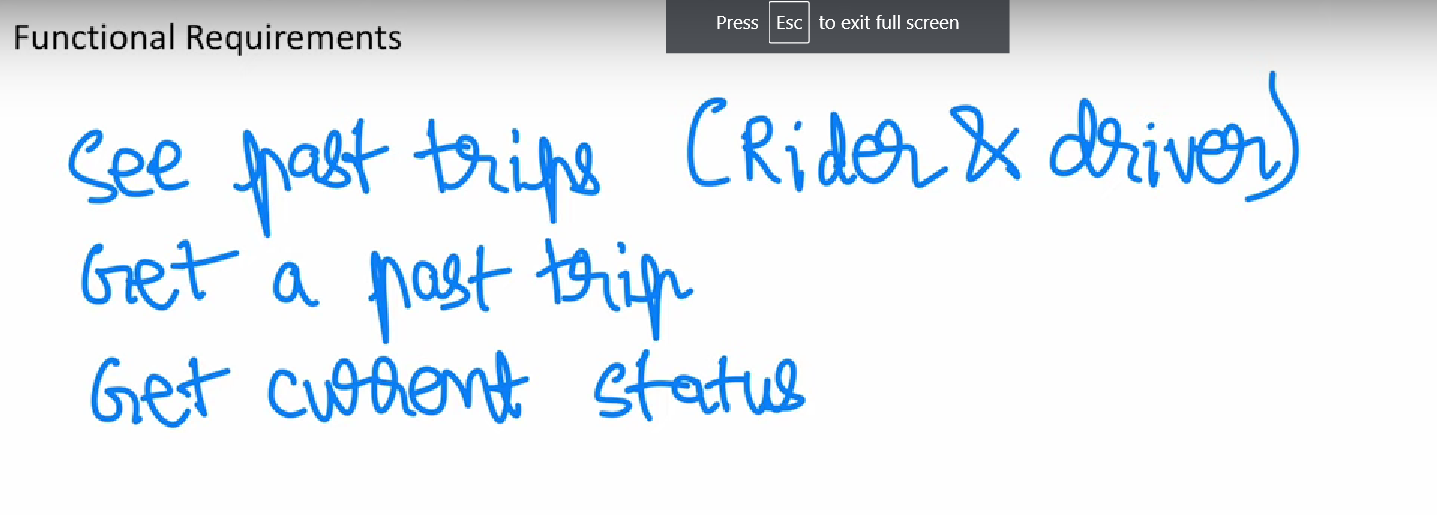 Functional Requirements
Press Esc to exit full screen
See past trips (Rider & driver)
Get a past trip
Get current status